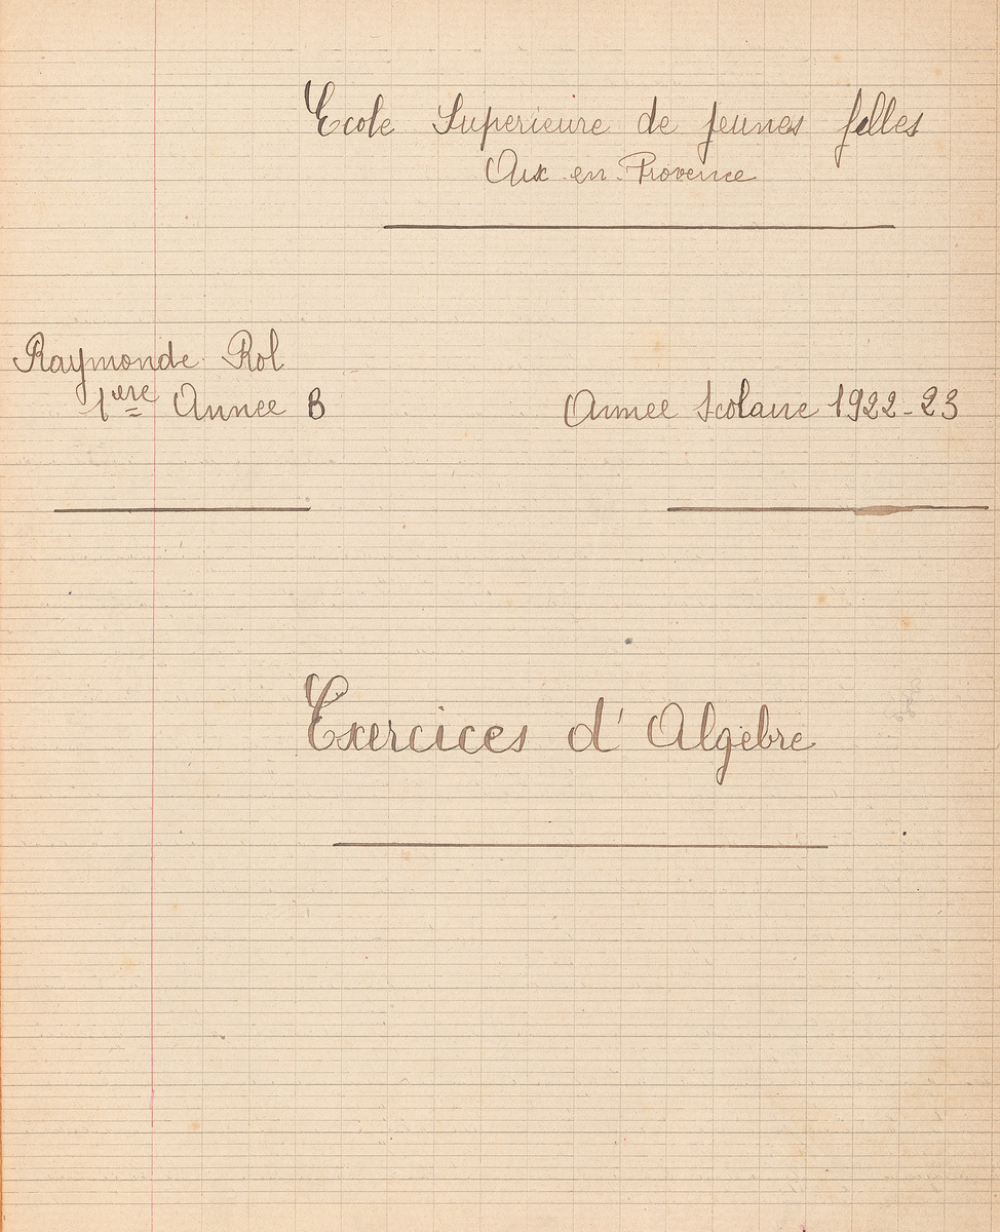 Ecole Superieure de jeunes filles
Aix en Provence
Raymonde Rol
1ère Annee B
Annee Scolaire 1922-23
Exercices d'Algèbre